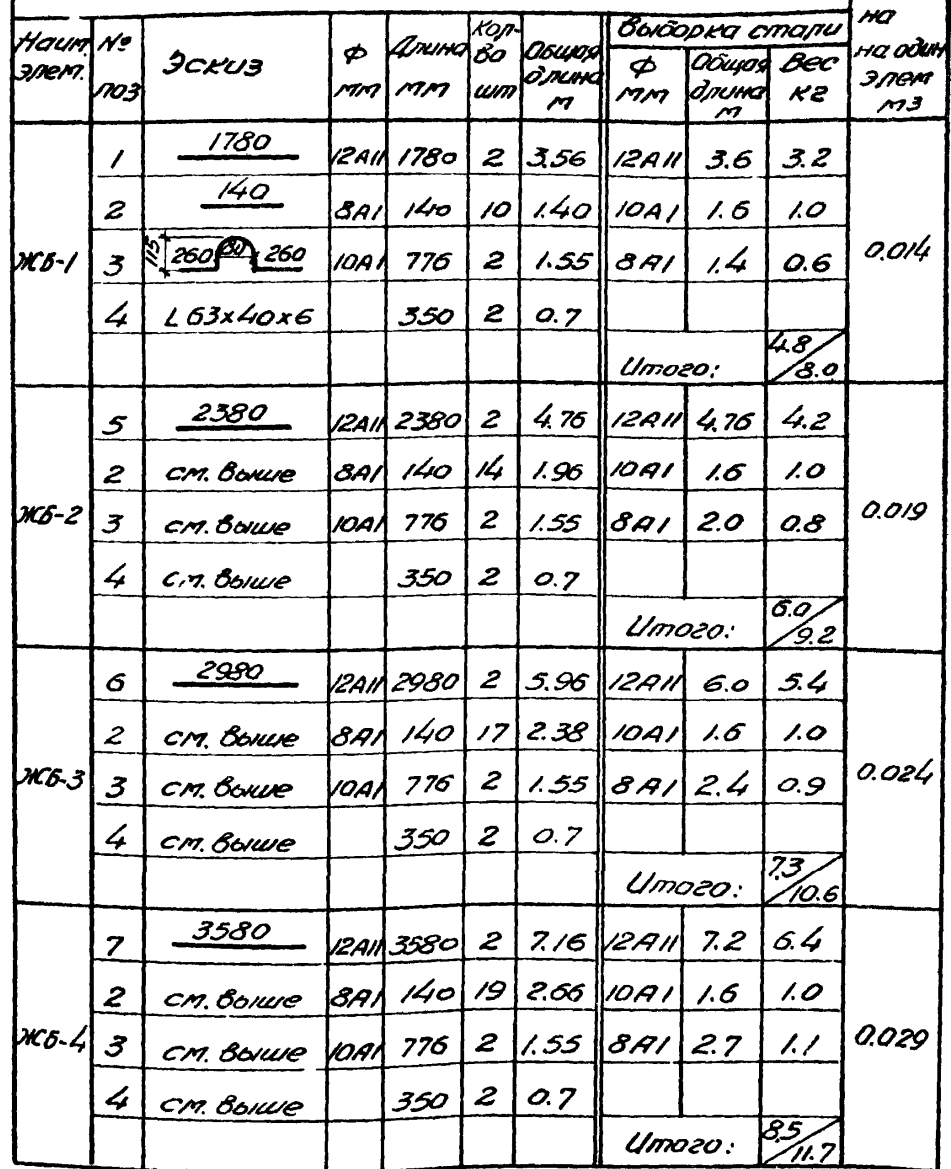 Наим. элем. № поз Эскиз Ф мм Длина мм Кол-во шт Общая длина м Выборка стали на
Ф мм Общая длина м Вес кг на один элем м3
ЖБ-1 0.014
1 1780 12АII 1780 2 3.56 12АII 3.6 3.2
2 140 8АI 140 10 1.40 10АI 1.6 1.0
3 115 260 260 10АI 776 2 1.55 8АI 1.4 0.6
4 L 63х40х6 350 2 0.7
Итого: 4.8/8.0
ЖБ-2 0.019
5 2380 12АII 2380 2 4.76 12АII 4.76 4.2
2 см. выше 8АI 140 14 1.96 10АI 1.6 1.0
3 см. выше 10АI 776 2 1.55 8АI 2.0 0.8
4 см. выше 350 2 0.7
Итого: 6.0/9.2
ЖБ-3 0.024
6 2980 12АII 2980 2 5.96 12АII 6.0 5.4
2 см. выше 8АI 140 17 2.38 10АI 1.6 1.0
3 см. выше 10АI 776 2 1.55 8АI 2.4 0.9
4 см. выше 350 2 0.7
Итого: 7.3/10.6
ЖБ-4 0.029
7 3580 12АII 3580 2 7.16 12АII 7.2 6.4
2 см. выше 8АI 140 19 2.66 10АI 1.6 1.0
3 см. выше 10АI 776 2 1.55 8АI 2.7 1.1
4 см. выше 350 2 0.7
Итого: 8.5/11.7